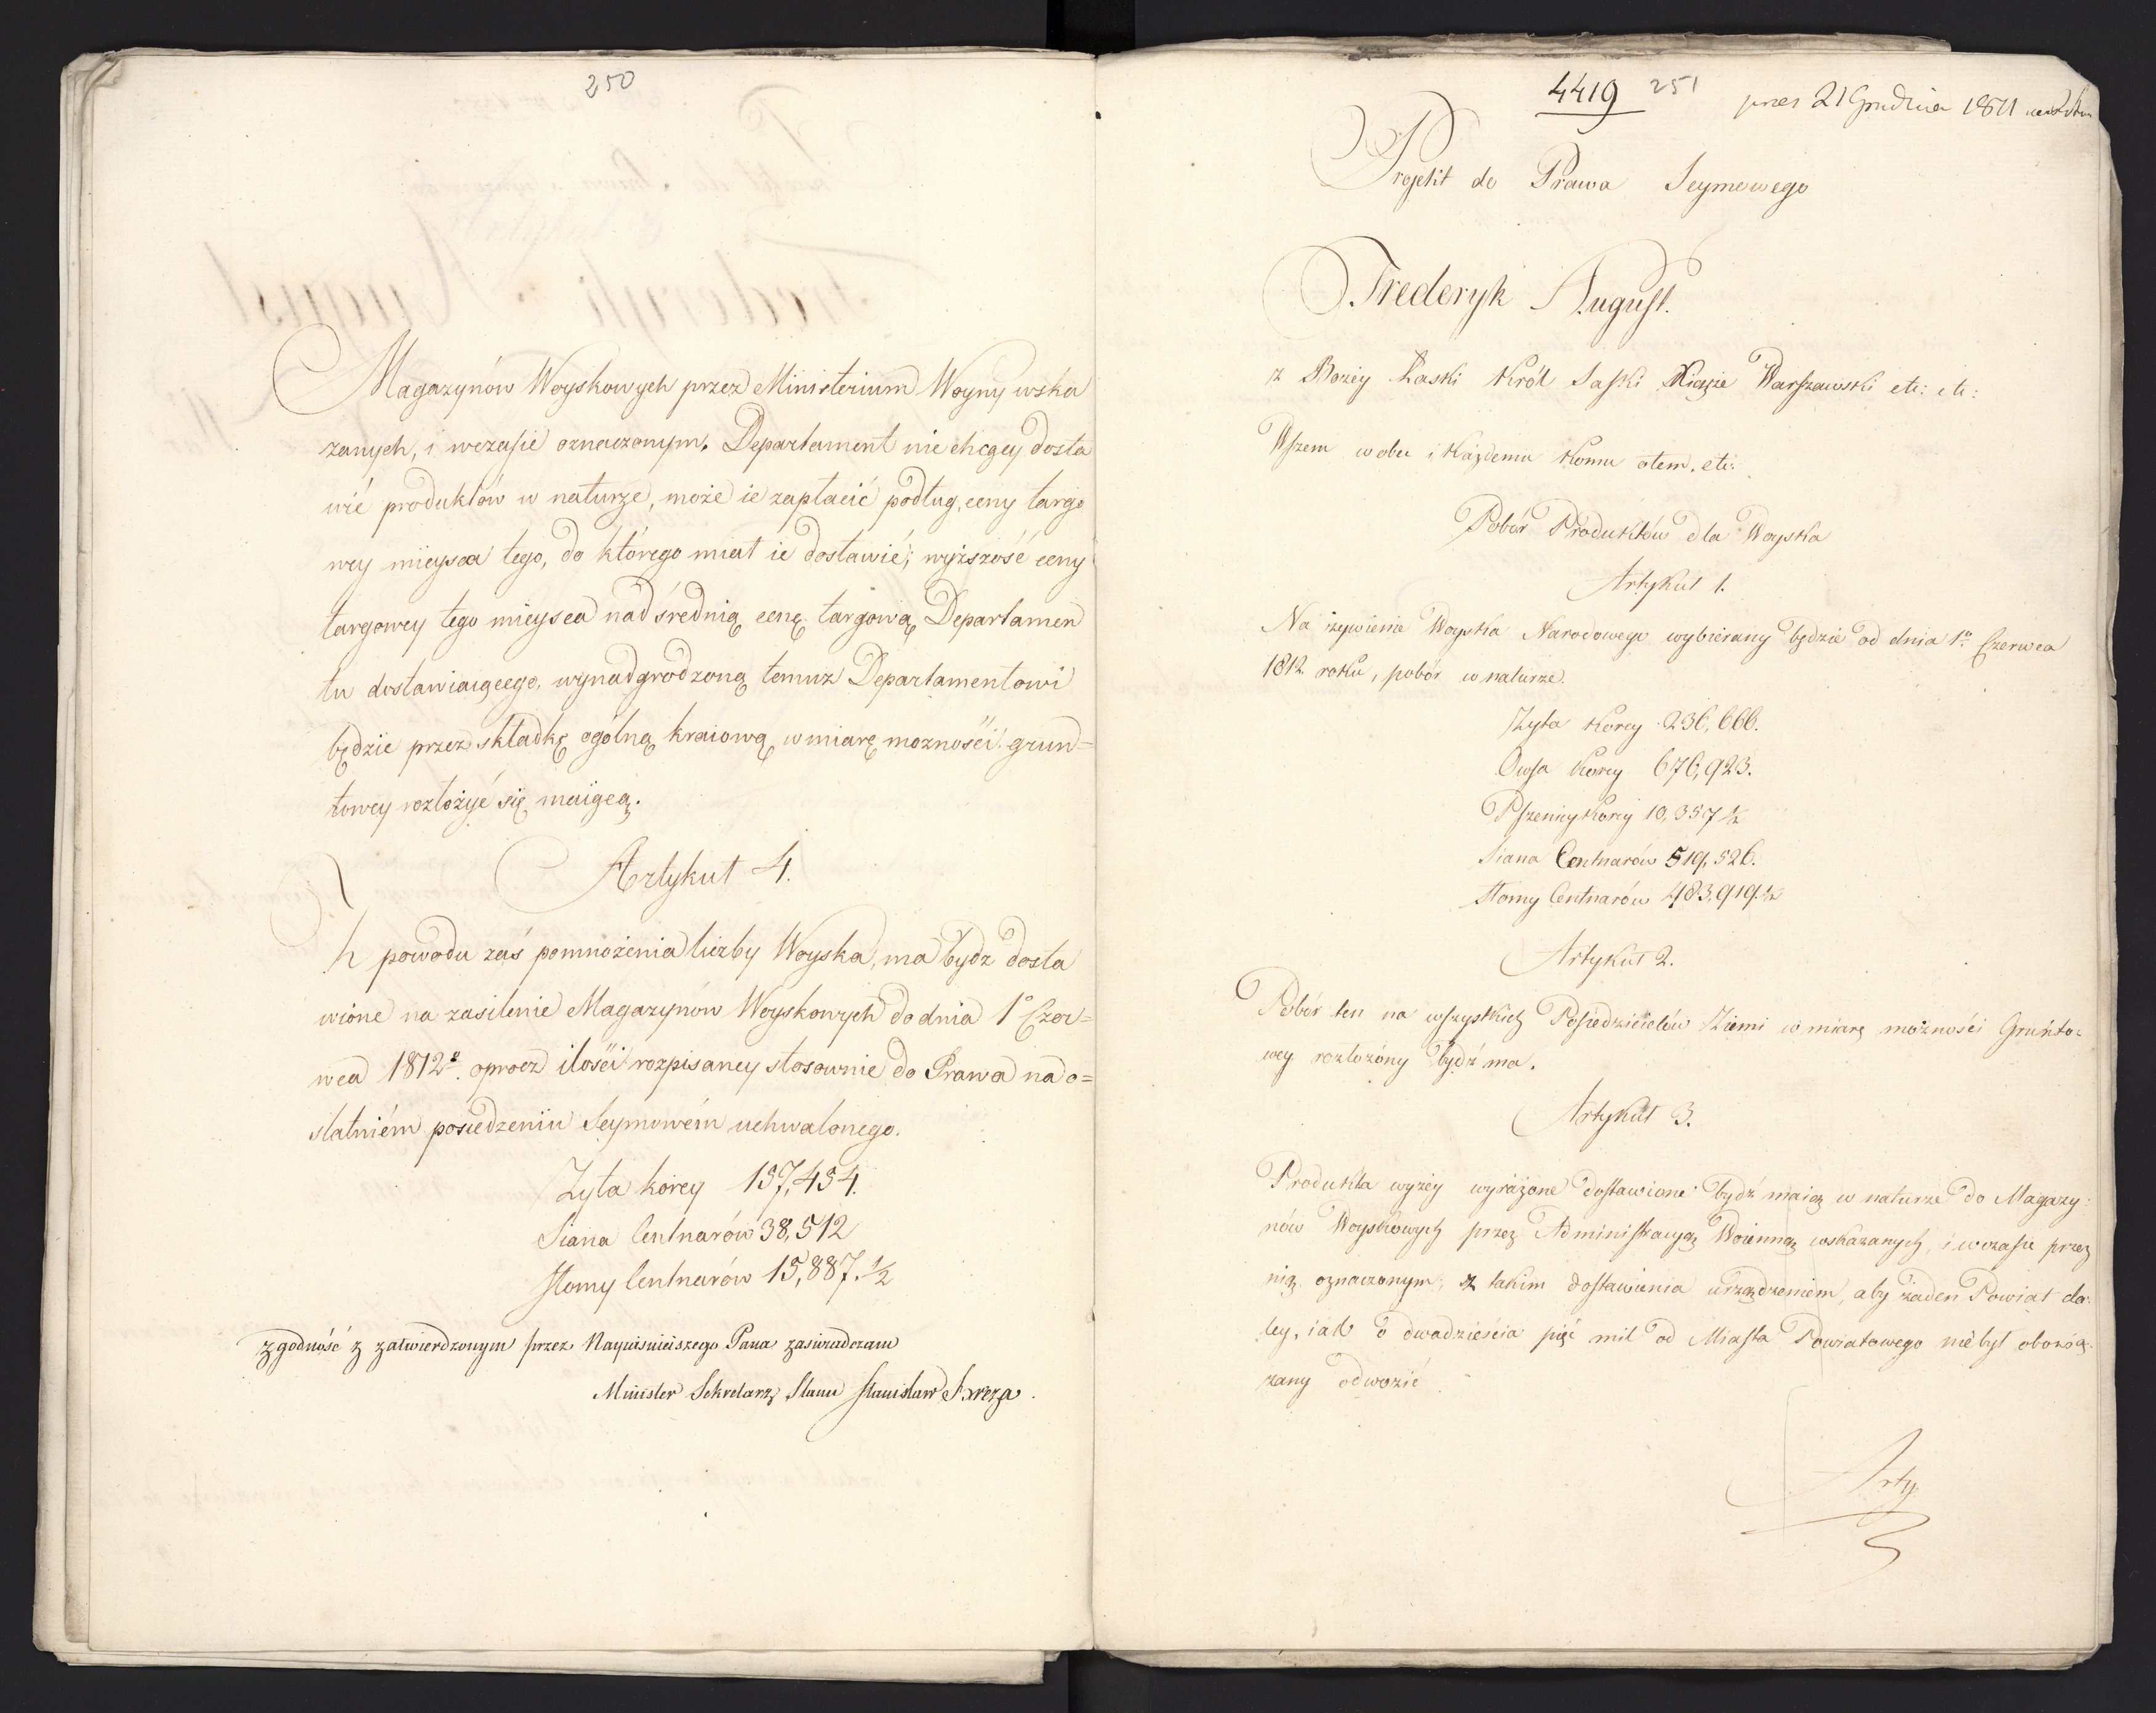 250
Magazynów Woyskowych przez Ministerium Woyny wska
zanych, i wczasie oznaczonym. Departament nie chcący dosta
wić produktów w naturze, może ie zapłacić podług ceny targo
wey mieysca tego, do którego miał ie dostawić; wyższość ceny
targowey tego mieysca nad średnią cenę targową Departamen
tu dostawiaiącego, wynadgrodzoną temuż Departamentowi
będzie przez składkę ogólną kraiową w miarę możności grun=
towey rozłożyć się maiącą.
Artykuł 4.
Z powodu zaś pomnożenia liczby Woyska, ma bydz dosta
wione na zasilenie Magazynów Woyskowych do dnia 1º Czer=
wca 1812º. oprocz ilości rozpisaney stosownie do Prawa na o=
statniém posiedzeniu Seymowém uchwalonego.
Żyta korcy 157,454.
Siana Centnarów 38,512
Słomy Centnarów 15,887.½
Zgodność z zatwierdzonym przez Nayiaśnieiszego Pana zaświadczam
Minister Sekretarz Stanu Stanisław Breza.
4419 251 21 Grudnia 1811
Projekt do Prawa Seymowego
Frederyk August.
z Bożey Łaski Król Saski Xiąże Warszawski etc: etc:
Wszem wobec i Każdemu Komu otem. etc:
Pobór Produktów dla Woyska
Artykuł 1.
Na żywienie Woyska Narodowego wybierany będzie od dnia 1º Czerwca
1812 roku, pobór w naturze.
Żyta Korcy 236,666.
Owsa Korcy 676,923.
Pszenicy Korcy 10,357 ½
Siana Centnarów 519,526.
Słomy Centnarów 483,919.½
Artykuł 2.
Pobór ten na wszystkich Posiedzicielów Ziemi w miarę możności Grunto=
wey rozłożony bydź ma.
Artykuł 3.
Produkta wyżey wyrażone dostawione bydź maią w naturze do Magazy=
nów Woyskowych przez Administracyą Woienną wskazanych, i wczasie przez
nią oznaczonym, z takim dostawienia urządzeniem, aby żaden Powiat da=
ley, iak o dwadzieścia pięć mil od Miasta Powiatowego nie był obowią=
zany odwozić
Arty